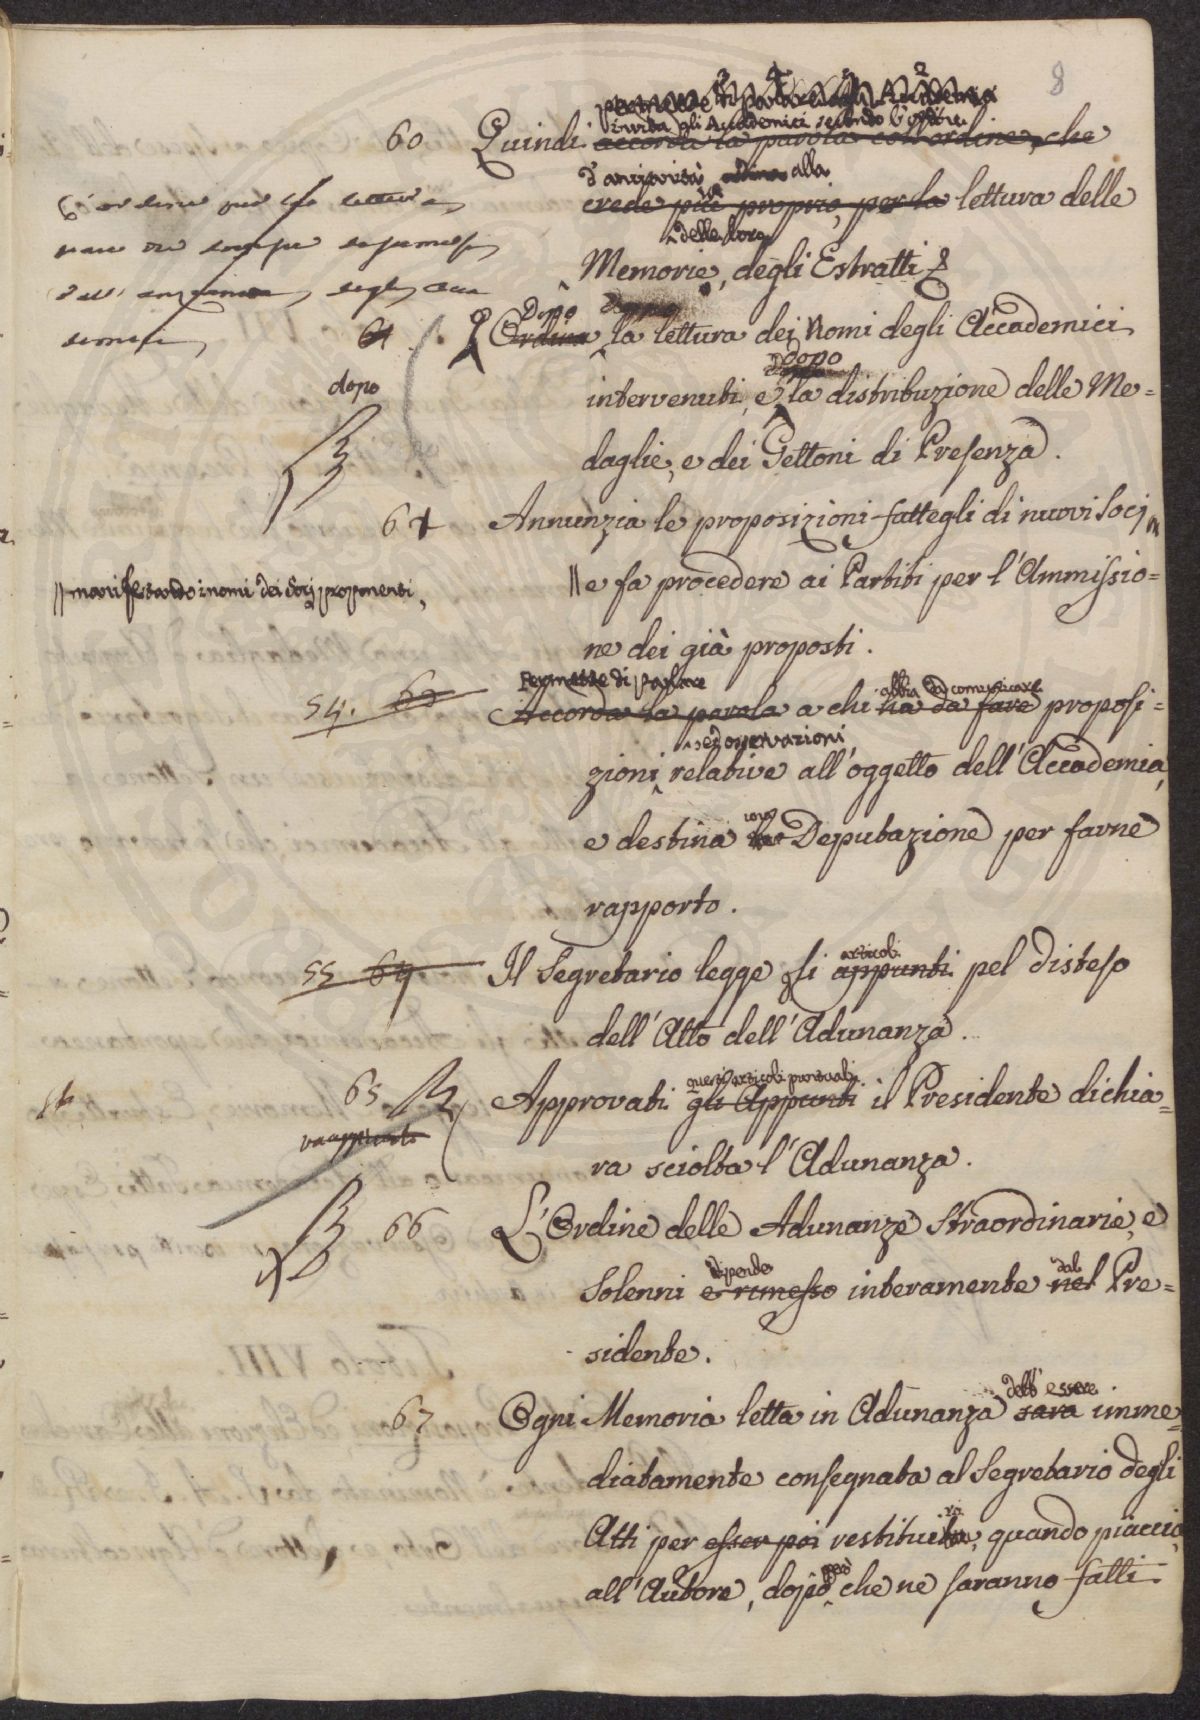 8
3 4 1 2
permette di parlare agli Accademici
invita gli Accademici secondo l'ordine
60 Quindi accorda la parola coll'ordine, che
d'anzianità alla
crede più proprio, per la lettura delle
delle loro
Memorie, degli Estratti
L'ordine per la lettura
sempre
dell' degli
Dopo
61 Ordina la lettura dei Nomi degli Accademici
dopo
dopo
intervenuti, e la distribuzione delle Me=
daglie, e dei Gettoni di Presenza.
62 Annunzia le proposizioni fattegli di nuovi Socj
// manifestando i nomi dei Socj proponenti,
// e fa procedere ai Partiti per l'Ammissio=
ne dei già proposti.
Permette di parlare abbia da comunicare
54. 63 Accorda la parola a chi ha da fare proposi=
ed osservazioni
zioni relative all'oggetto dell'Accademia,
una
e destina la Deputazione per farne
rapporto.
articoli
55 64 Il Segretario legge gli appunti pel disteso
dell'Atto dell'Adunanza.
questi articoli puntuali
65 Approvati gli Appunti il Presidente dichia=
ra sciolta l'Adunanza.
66 L'Ordine delle Adunanze Straordinarie, e
dipende dal
Solenni è rimesso interamente nel Pre=
sidente.
deve essere
67 Ogni Memoria letta in Adunanza sarà imme=
diatamente consegnata al Segretario degli
Atti per esser poi restituita, quando piaccia
però
all'Autore, dopo che ne saranno fatti